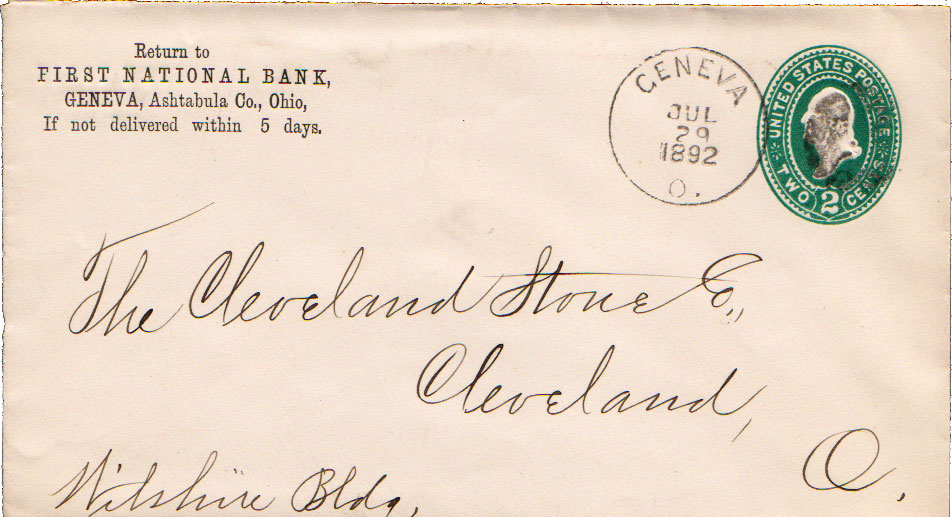 Return to
FIRST NATIONAL BANK,
GENEVA, Ashtabula Co., Ohio,
If not delivered within 5 days.
GENEVA
JUL
29
1892
O.
UNITED STATES POSTAGE
TWO 2 CENTS
The Cleveland Stone Co.,
Cleveland,
O.
Wilshire Bldg.